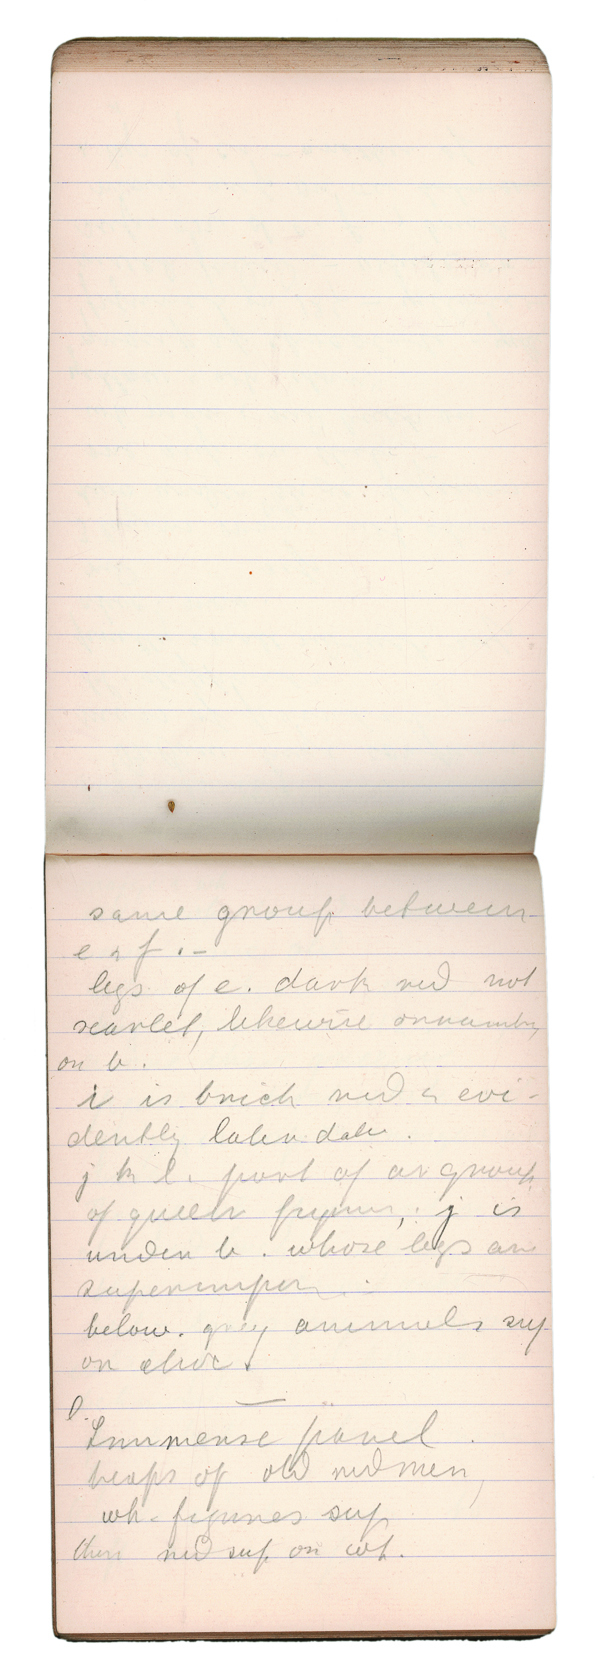 same group between
e & f. –
legs of e. dark red not
scarlet, likewise
on b.
i is brick red & evi-
dently later date.
j k l. part of a group
of queer figures, j is
under k. whose legs are
below. grey animals sup
on
l.
Immense panel.
heaps of old red men,
wh. figures sup
then red sup on wh.